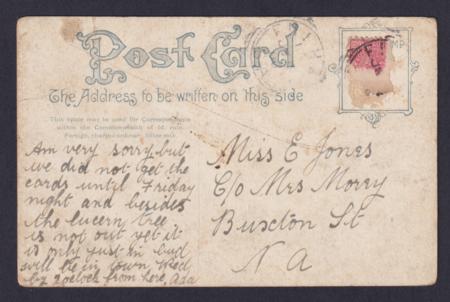 Post Card
The Address to be written on this side
This space may be used for Correspondence
within the Commonwealth of
Am very sorry but
we did not get the
cards until Friday
night and besides
the lucern tree
is not out yet it
is only just in bud
will be in town Wed
by 2oclock from here, Ada
Miss E Jones
C/o Mrs Morey
Buxton St
N A